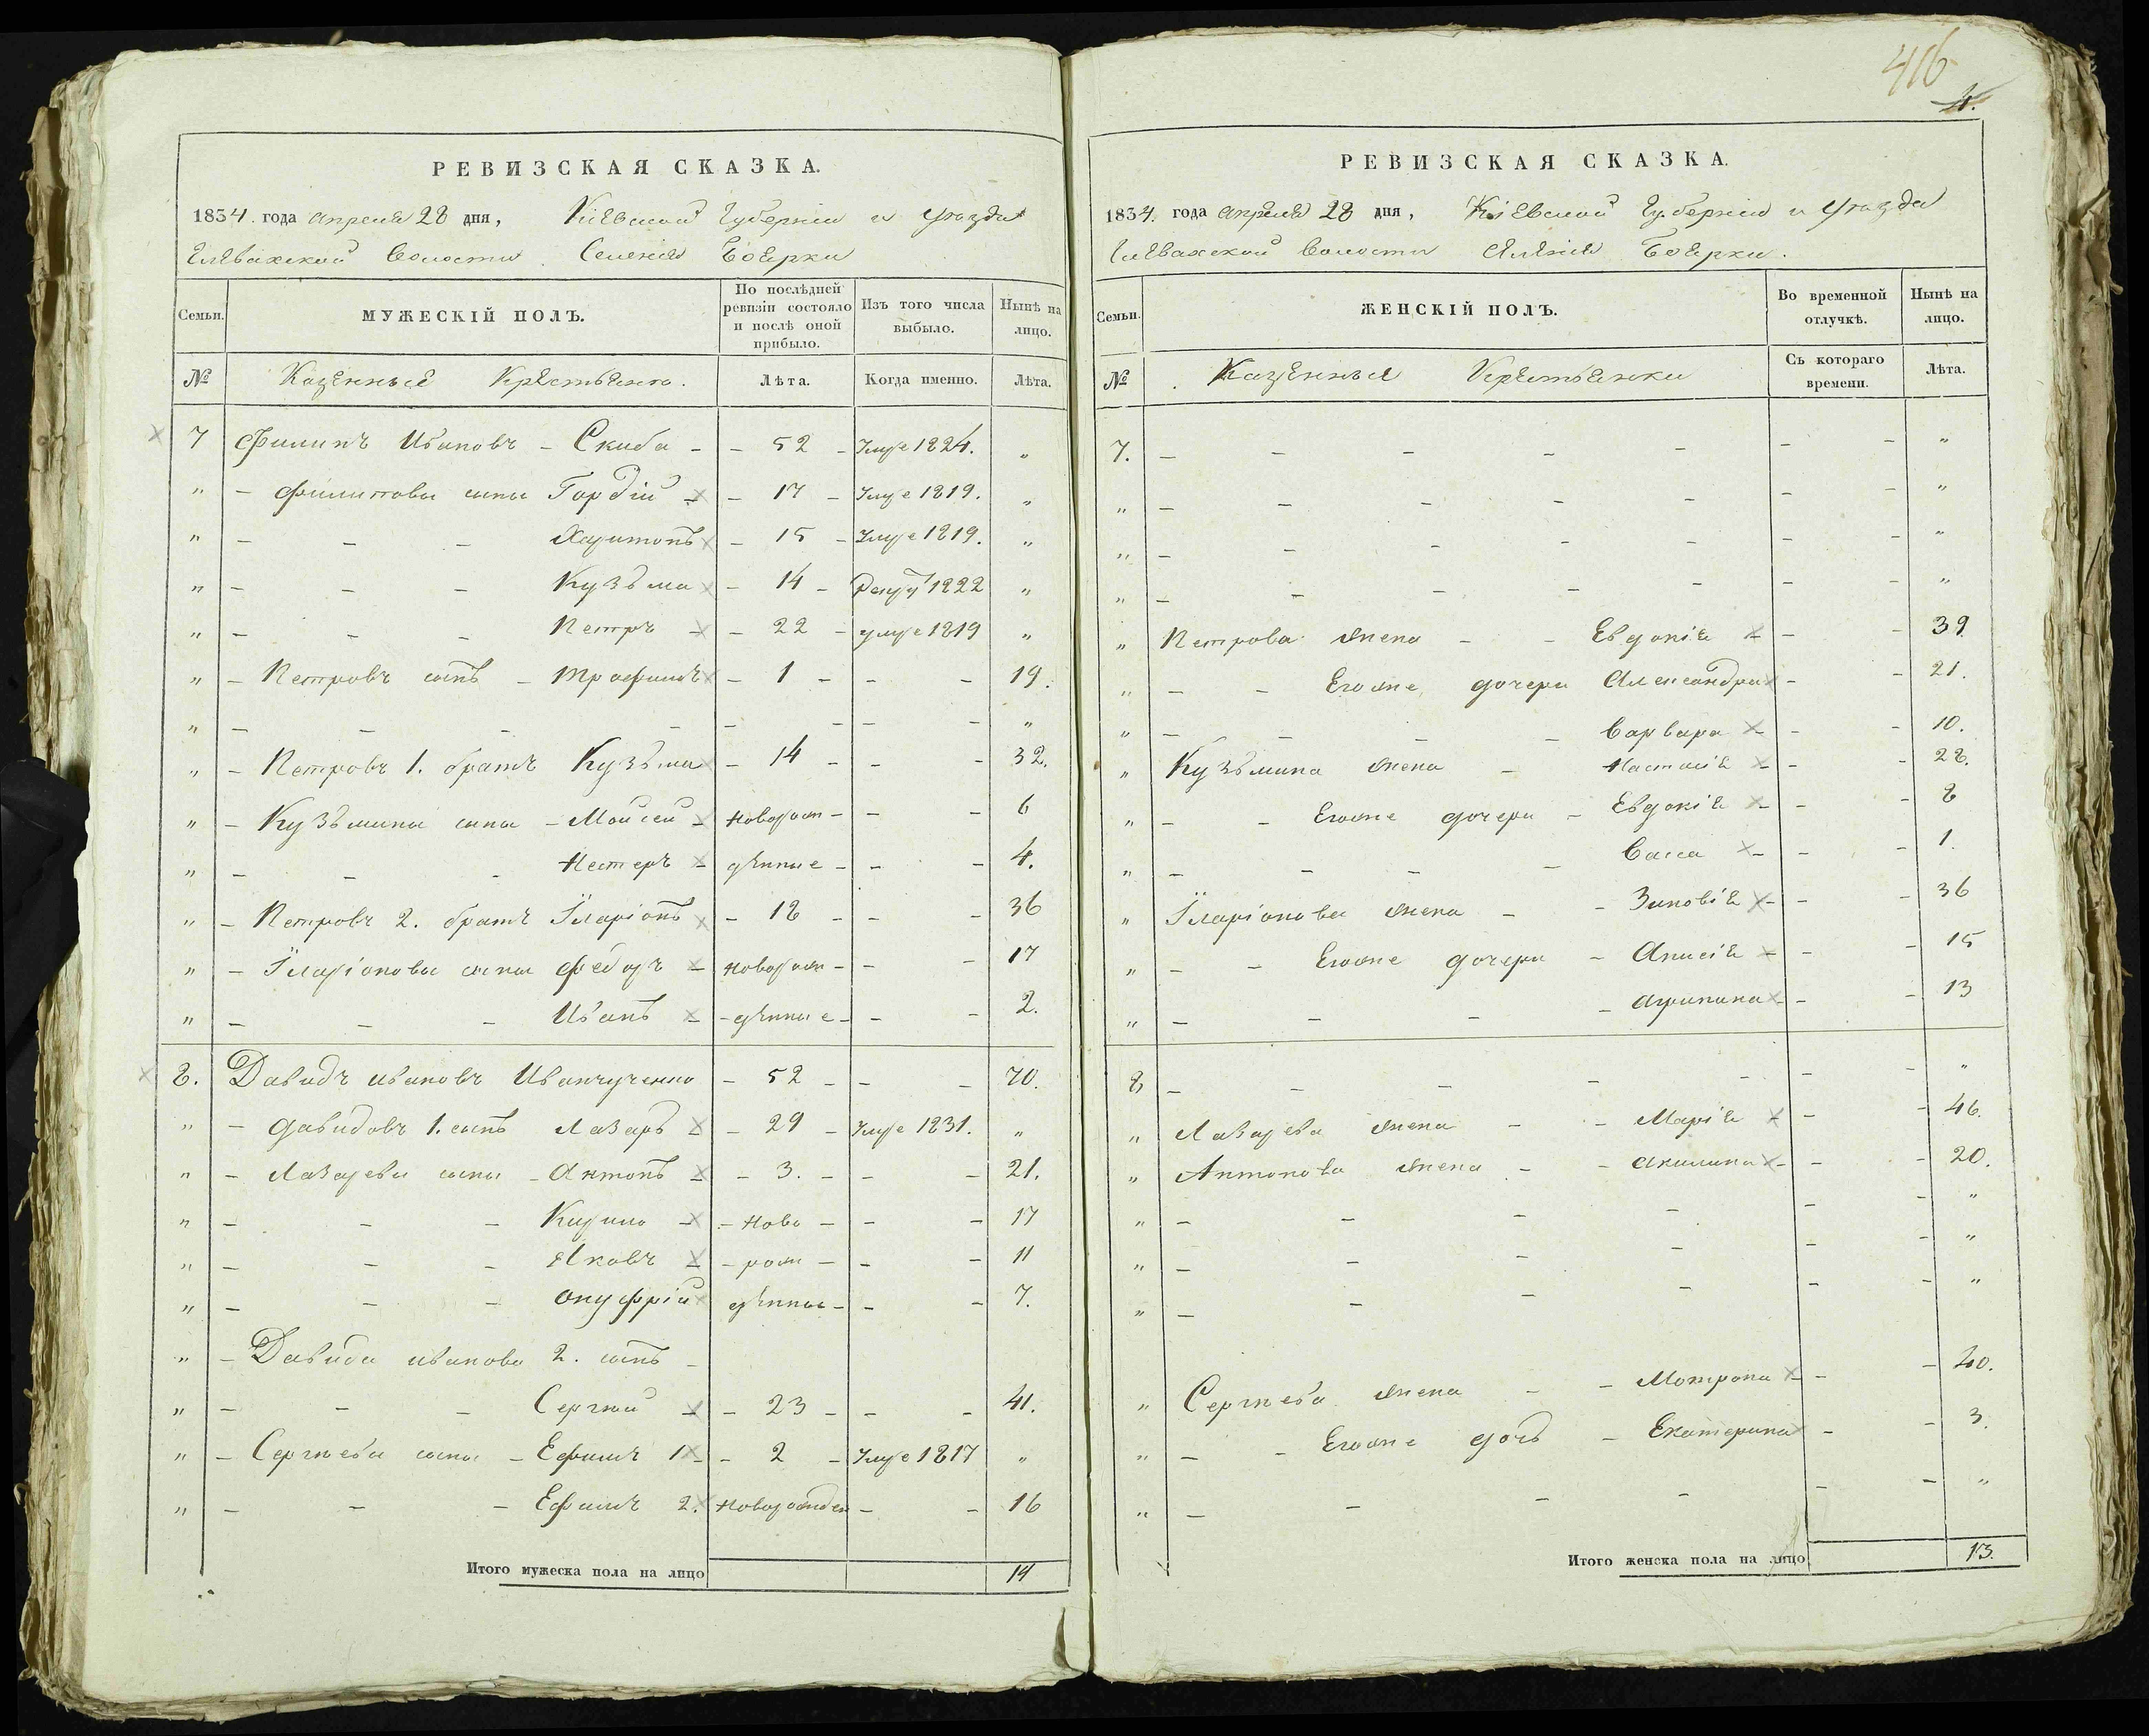 416
4.
РЕВИЗСКАЯ СКАЗКА.
1834. года Апреля 28 дня, Кіевской Губерніи и Уѣзда
Глевахской Волости Селенія Боярки
Семьи. МУЖЕСКІЙ ПОЛЪ. По послѣдней ревизіи состояло и послѣ оной прибыло. Изъ того числа выбыло. Нынѣ на лицо.
№ Казенные Крестьяне. Лѣта. Когда именно. Лѣта.
7 Филипъ Ивановъ - Скиба - - 52 - Умре 1824. "
" - Филиповы сыны Гордій - - 17 - Умре 1819. "
" - - - Харитонъ - 15 - Умре 1819. "
" - - - Кузьма - 14 - 1822 "
" - - - Петръ - - 22 - умре 1819 "
" - Петровъ сынъ - Трофимъ - 1 - - - 19.
" - - - - - - - - "
" - Петровъ 1. братъ Кузьма - 14 - - - 32.
" - Кузьмины сыны - Мойсей - Новорож - - - 6
" - - - Нестеръ - дѣнные - - - 4.
" - Петровъ 2. братъ Іларіонъ - 18 - - - 36
" - Іларіоновы сыны Федоръ - Новорож - - - 17
" - - - Иванъ - - дѣнные - - - 2.
8. Давидъ Ивановъ - 52 - - - 70.
" - Давидовъ 1. сынъ Лазарь - - 29 - Умре 1831. "
" - Лазаревы сыны - Антонъ - - 3. - - - 21.
" - - - Кирило - - Ново - - - 17
" - - - Яковъ - - рож - - - 11
" - - - Онуфрій дѣнные - - - 7.
" - Давида Иванова 2. сынъ -
" - - - Сергѣй - - 23 - - - 41.
" - Сергѣевы сыны - Ефимъ 1 - - 2 - Умре 1817 "
" - - - Ефимъ 2. Новорожден - - 16
Итого мужеска пола на лицо 14
РЕВИЗСКАЯ СКАЗКА.
1834. года Апреля 28 дня, Кіевской Губерніи и Уѣзда
Глевахской Волости Селенія Боярки.
Семьи. ЖЕНСКІЙ ПОЛЪ. Во временной отлучкѣ. Нынѣ на лицо.
№ Казенные Крестьянки Съ котораго времени. Лѣта.
7. - - - - - - - "
" - - - - - - - "
" - - - - - - - "
" - - - - - - - "
" Петрова жена - - Евдокія - - - 39
" - - Егоже дочери Александра - - 21.
" - - - - Варвара - - - 10.
" Кузьмина жена - Настасія - - - 28.
" - - Егоже дочери - Евдокія - - - 8
" - - - - Васса - - - 1.
" Іларіонова жена - - Зиновія - - - 36
" - - Егоже дочери - Анисія - - - 15
" - - - - Агрипина - - - 13
8, - - - - - - - "
" Лазарева жена - - Марія - - - 46.
" Антонова жена - - Акилина - - - 20.
" - - - - - - "
" - - - - - - "
" - - - - - - "
" Сергѣева жена - - Мотрона - - - 40.
" - - Егоже дочь - Екатерина - - 3.
" - - - - - - "
Итого женска пола на лицо 13.